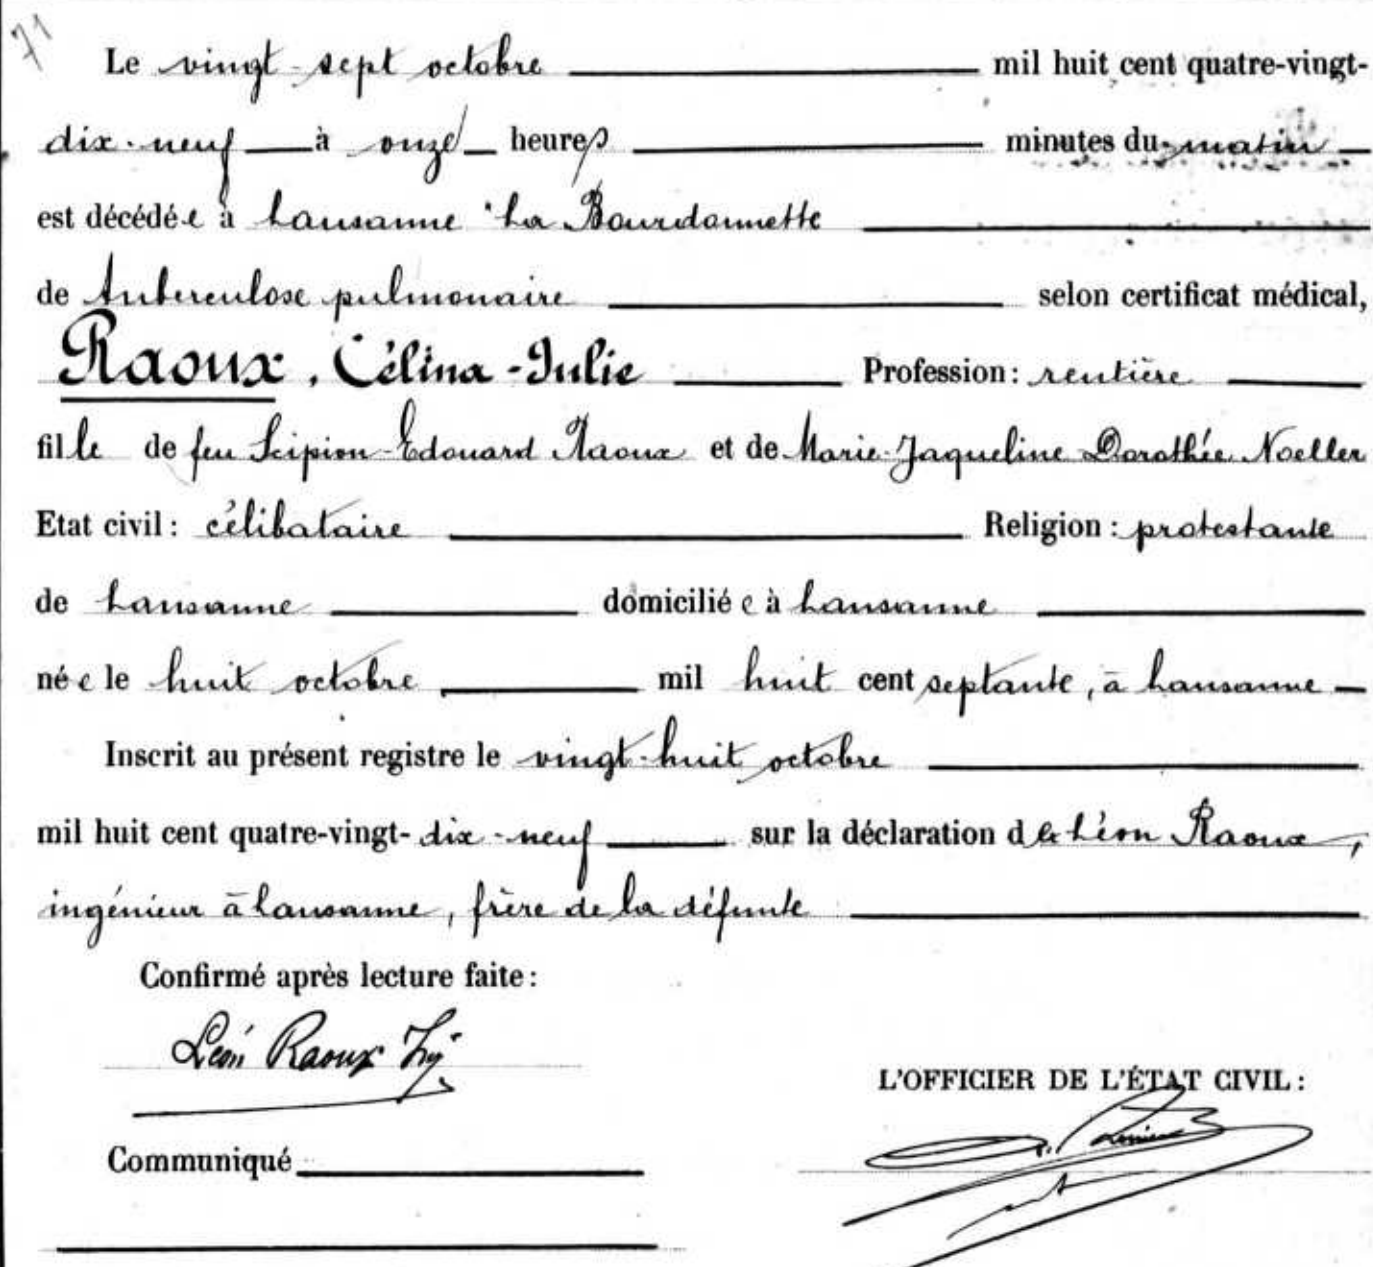 71
Le vingt-sept octobre mil huit cent quatre-vingt-
dix-neuf à onze heures minutes du matin
est décédée à Lausanne "La Bourdonnette
de tuberculose pulmonaire selon certificat médical,
Raoux, Célina-Julie Profession: rentière
fille de feu Scipion-Edouard Raoux et de Marie-Jaqueline Dorothée Noeller
Etat civil: célibataire Religion: protestante
de Lausanne domiciliée à Lausanne
née le huit octobre mil huit cent septante, à Lausanne
Inscrit au présent registre le vingt-huit octobre
mil huit cent quatre-vingt-dix-neuf sur la déclaration de Léon Raoux,
ingénieur à Lausanne, frère de la défunte
Confirmé après lecture faite:
Léon Raoux Ing.
L'OFFICIER DE L'ÉTAT CIVIL:
Communiqué